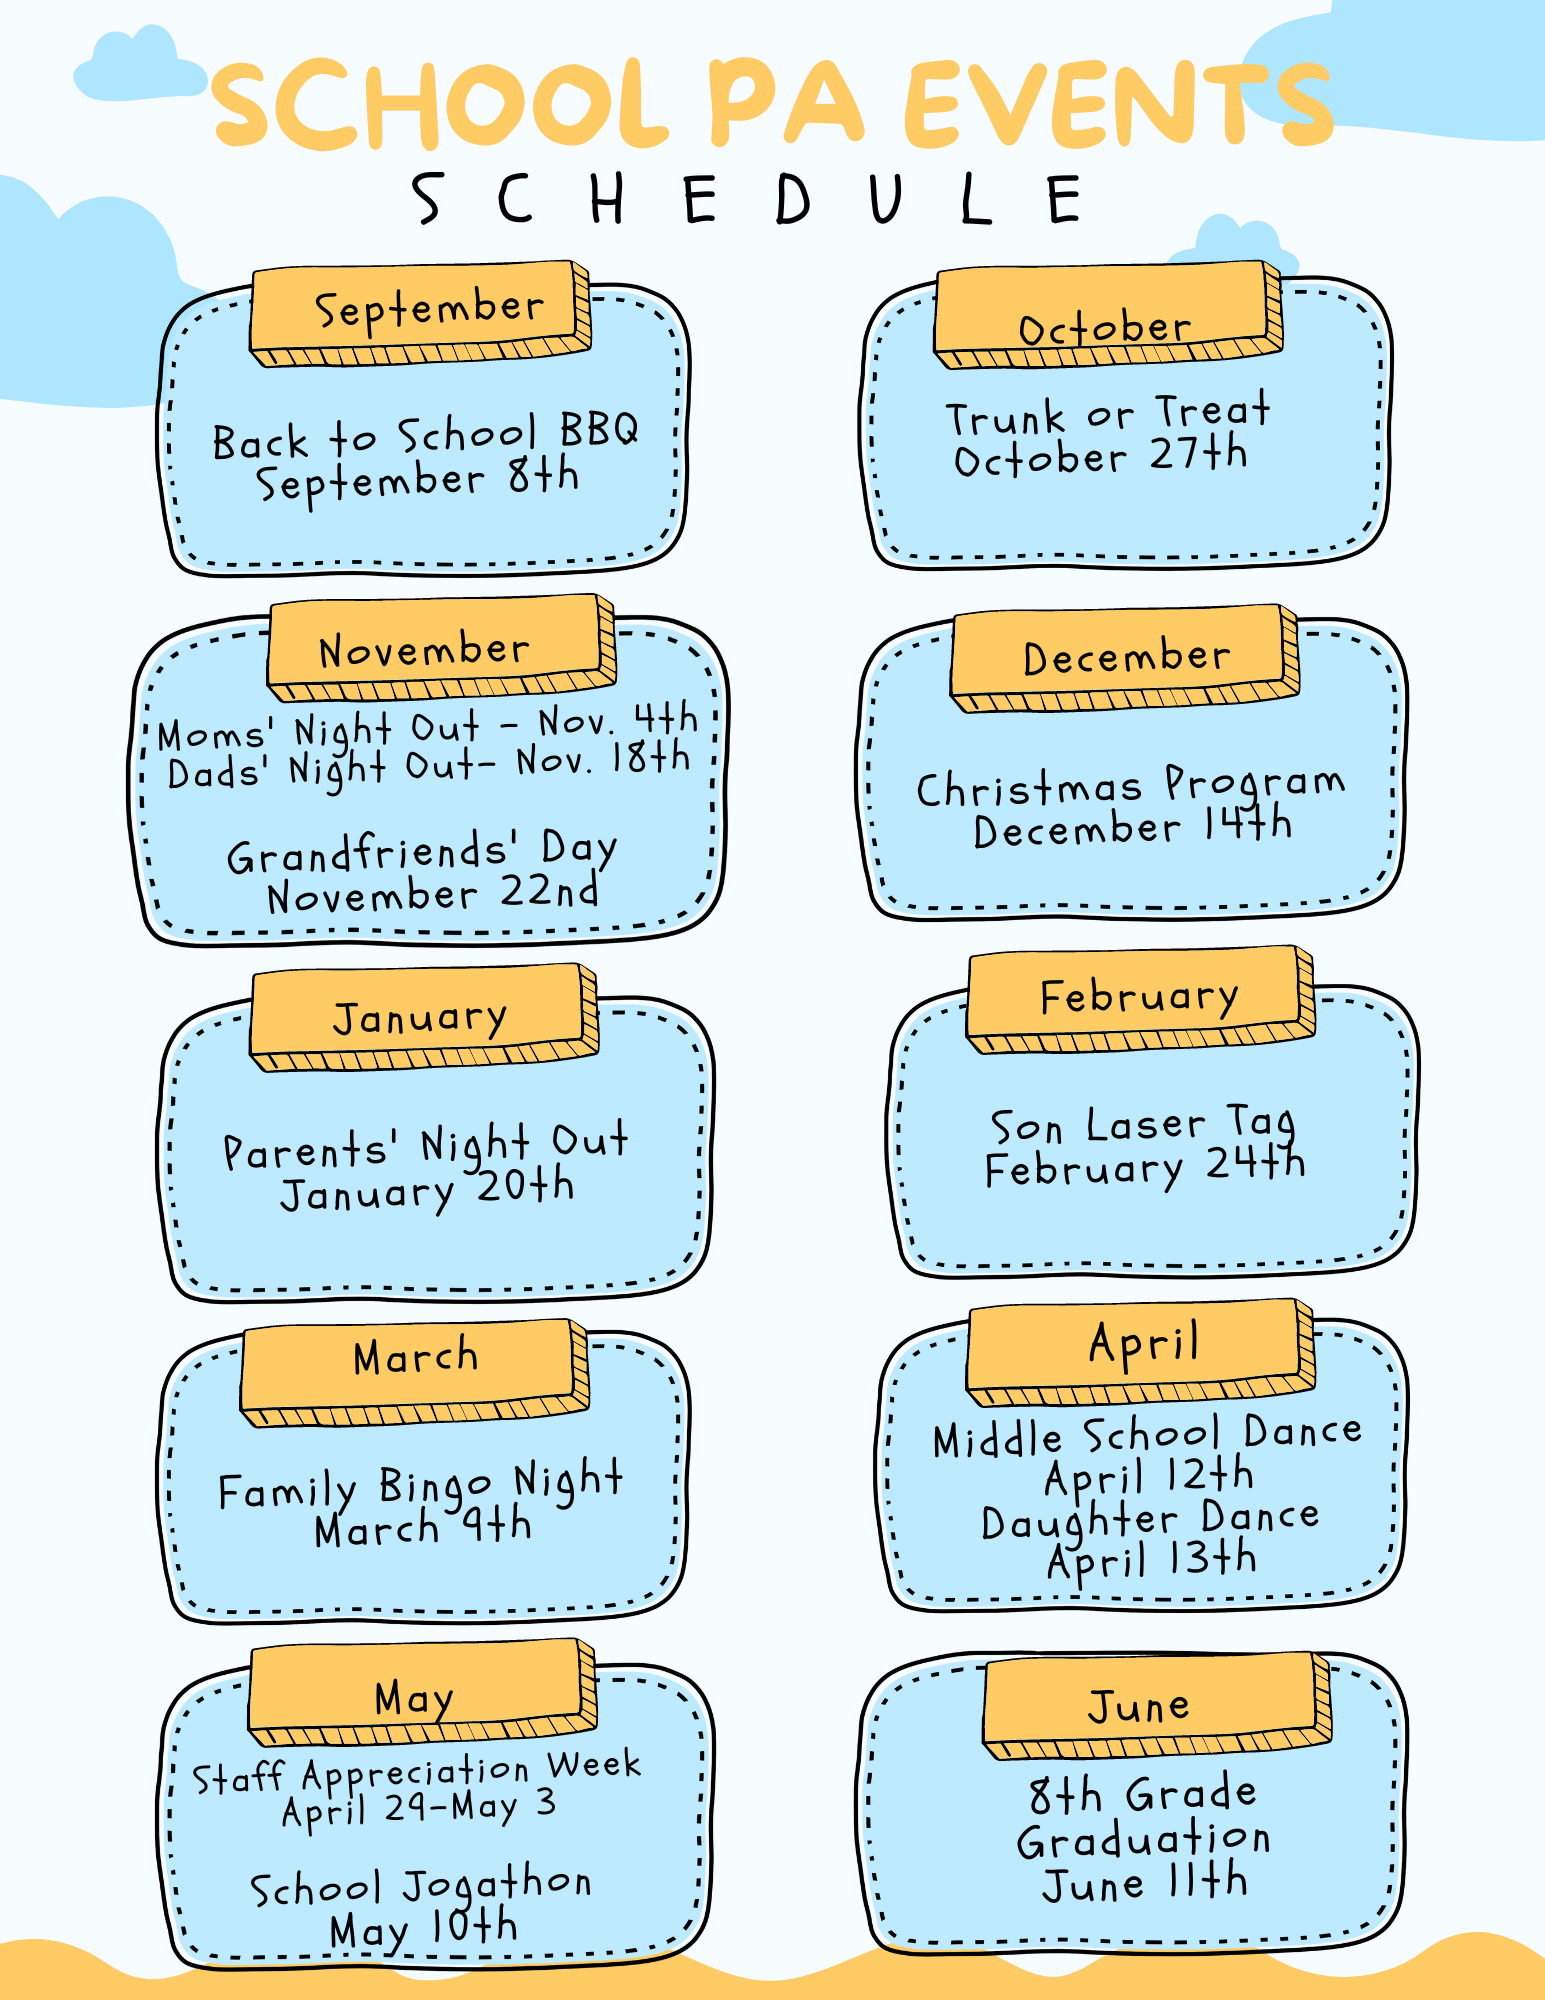 SCHOOL PA EVENTS
SCHEDULE
September
Back to School BBQ
September 8th
October
Trunk or Treat
October 27th
November
Moms' Night Out - Nov. 4th
Dads' Night Out- Nov. 18th
Grandfriends' Day
November 22nd
December
Christmas Program
December 14th
January
Parents' Night Out
January 20th
February
Son Laser Tag
February 24th
March
Family Bingo Night
March 9th
April
Middle School Dance
April 12th
Daughter Dance
April 13th
May
Staff Appreciation Week
April 29-May 3
School Jogathon
May 10th
June
8th Grade
Graduation
June 11th